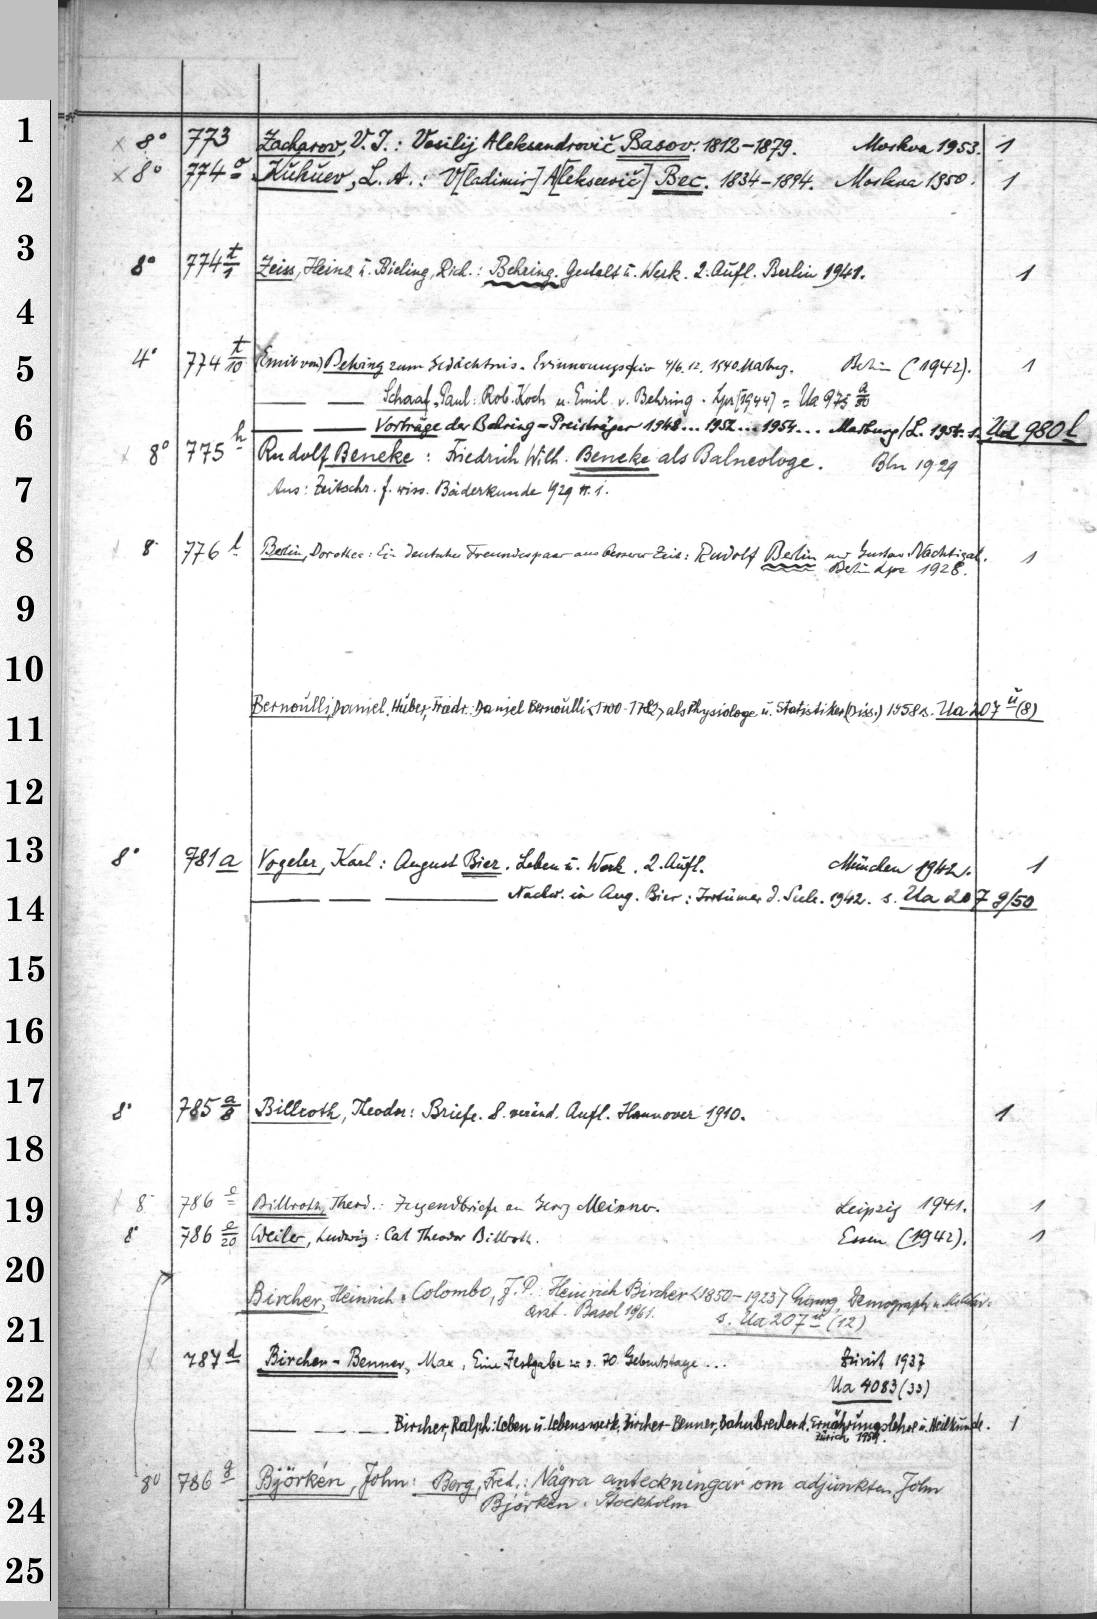 1
× 8° 773 Zacharov, V. I.: Vasilij Aleksandrovič Basov. 1812–1879. Moskva 1953. 1
2
× 8° 774 L. A.: V[ladimir] A[lekseevič] Bec. 1834–1894. Moskva 1950. 1
3
8° 774 t/1 Zeiss, Heinz u. Bieling, Rich.: Behring. Gestalt u. Werk. 2. Aufl. Berlin 1941. 1
4
5
4° 774 t/10 (Emil von) Behring zum Gedächtnis. 4/6. 12. 1940 Marburg. Berlin (1942). 1
— — Schaaf, Paul: Rob. Koch u. Emil v. Behring. Lpz [1944] = Ua 975
6
— — Vorträge der Behring-Preisträger 1948 ... 1952 ... 1954 ... Marburg/L. 1956. s. Ud 980 l
× 8° 775 h Rudolf Beneke: Friedrich Wilh. Beneke als Balneologe. Bln 1929
7
Aus: Zeitschr. f. wiss. Bäderkunde 1929 H. 1.
8
8° 776 l Berlin, Dorothee: Ein deutsches Freundespaar aus besserer Zeit: Rudolf Berlin und Gustav Nachtigal. 1
Berlin Lpz 1928.
9
10
11
Bernoulli, Daniel. Huber, Friedr.: Daniel Bernoulli <1700-1782> als Physiologe u. Statistiker (Diss.) 1958 s. Ua 207 ü (8)
12
13
8° 781 a Vogeler, Karl: August Bier. Leben u. Werk. 2. Aufl. München 1942. 1
14
— — — Nachw. in Aug. Bier: Irrtümer 1942. s. Ua 207 g/50
15
16
17
8° 785 a/8 Billroth, Theodor: Briefe. 8. veränd. Aufl. Hannover 1910. 1
18
19
8° 786 e Billroth, Theod.: Jugendbriefe an Georg Meissner. Leipzig 1941. 1
8° 786 e/20 Weiler, Ludwig: Carl Theodor Billroth. Essen (1942). 1
20
Bircher, Heinrich: Colombo, J. P.: Heinrich Bircher <1850–1923> Chirurg, Demograph u. Militär-
arzt. Basel 1961. s. Ua 207 ü (12)
21
787 d Bircher-Benner, Max, Eine Festgabe zu s. 70. Geburtstage ... Zürich 1937
22
Ua 4083 (33)
— — Bircher, Ralph: Leben u. Lebenswerk, Bircher-Benner, Bahnbrecher d. Ernährungslehre u. Heilkunde. 1
Zürich 1959.
23
8° 786 Björkén, John: Berg, Fred.: Några anteckningar om adjunkten John
24
Björkén. Stockholm
25